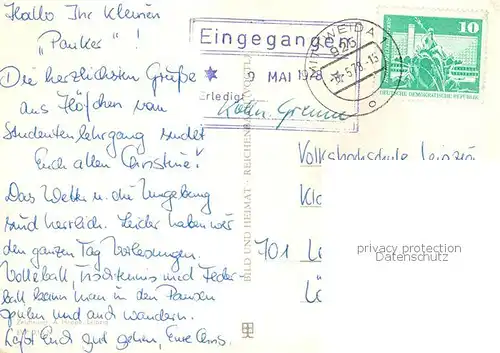 Hallo Ihr kleinen
"Panker"!
Die herzlichsten Grüße
aus Höfchen vom
Studentenlehrgang sendet
Euch allen Christine!
Das Wetter u. die Umgebung
sind herrlich. Leider haben wir
den ganzen Tag Vorlesungen.
Volleyball, Tischtennis und Feder-
ball kann man in den Pausen
spielen und auch wandern.
Laßt Euch gut gehen, Eure Chris.
Eingegangen
9 MAI 1978
Erledigt
MITTWEIDA
925
-8.-5.78-15
10
DEUTSCHE DEMOKRATISCHE REPUBLIK
BILD UND HEIMAT REICHENBACH
Volkshochschule Leipzig
701
privacy protection
Datenschutz